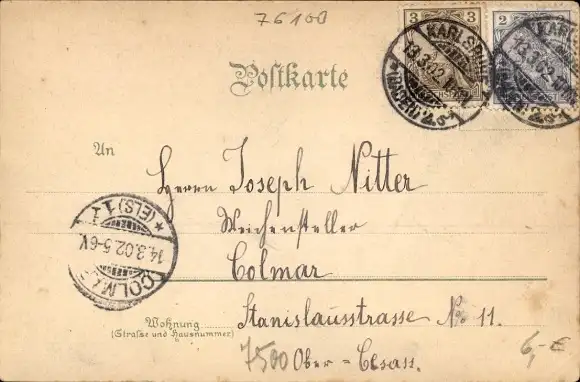 76100
3 3 2
KARLSRUHE 13.3.02 (BADEN) 2 * 1
KARLSRUHE 13.3.02 (BADEN) 2 * 1
Postkarte
An
Herrn Joseph Nitter
Weichensteller
Colmar
COLMAR 14.3.02 5-6V. * (ELS) 1 I
Stanislausstrasse No. 11.
Wohnung
(Straße und Hausnummer)
7500 Ober = Elsass.
6,-€